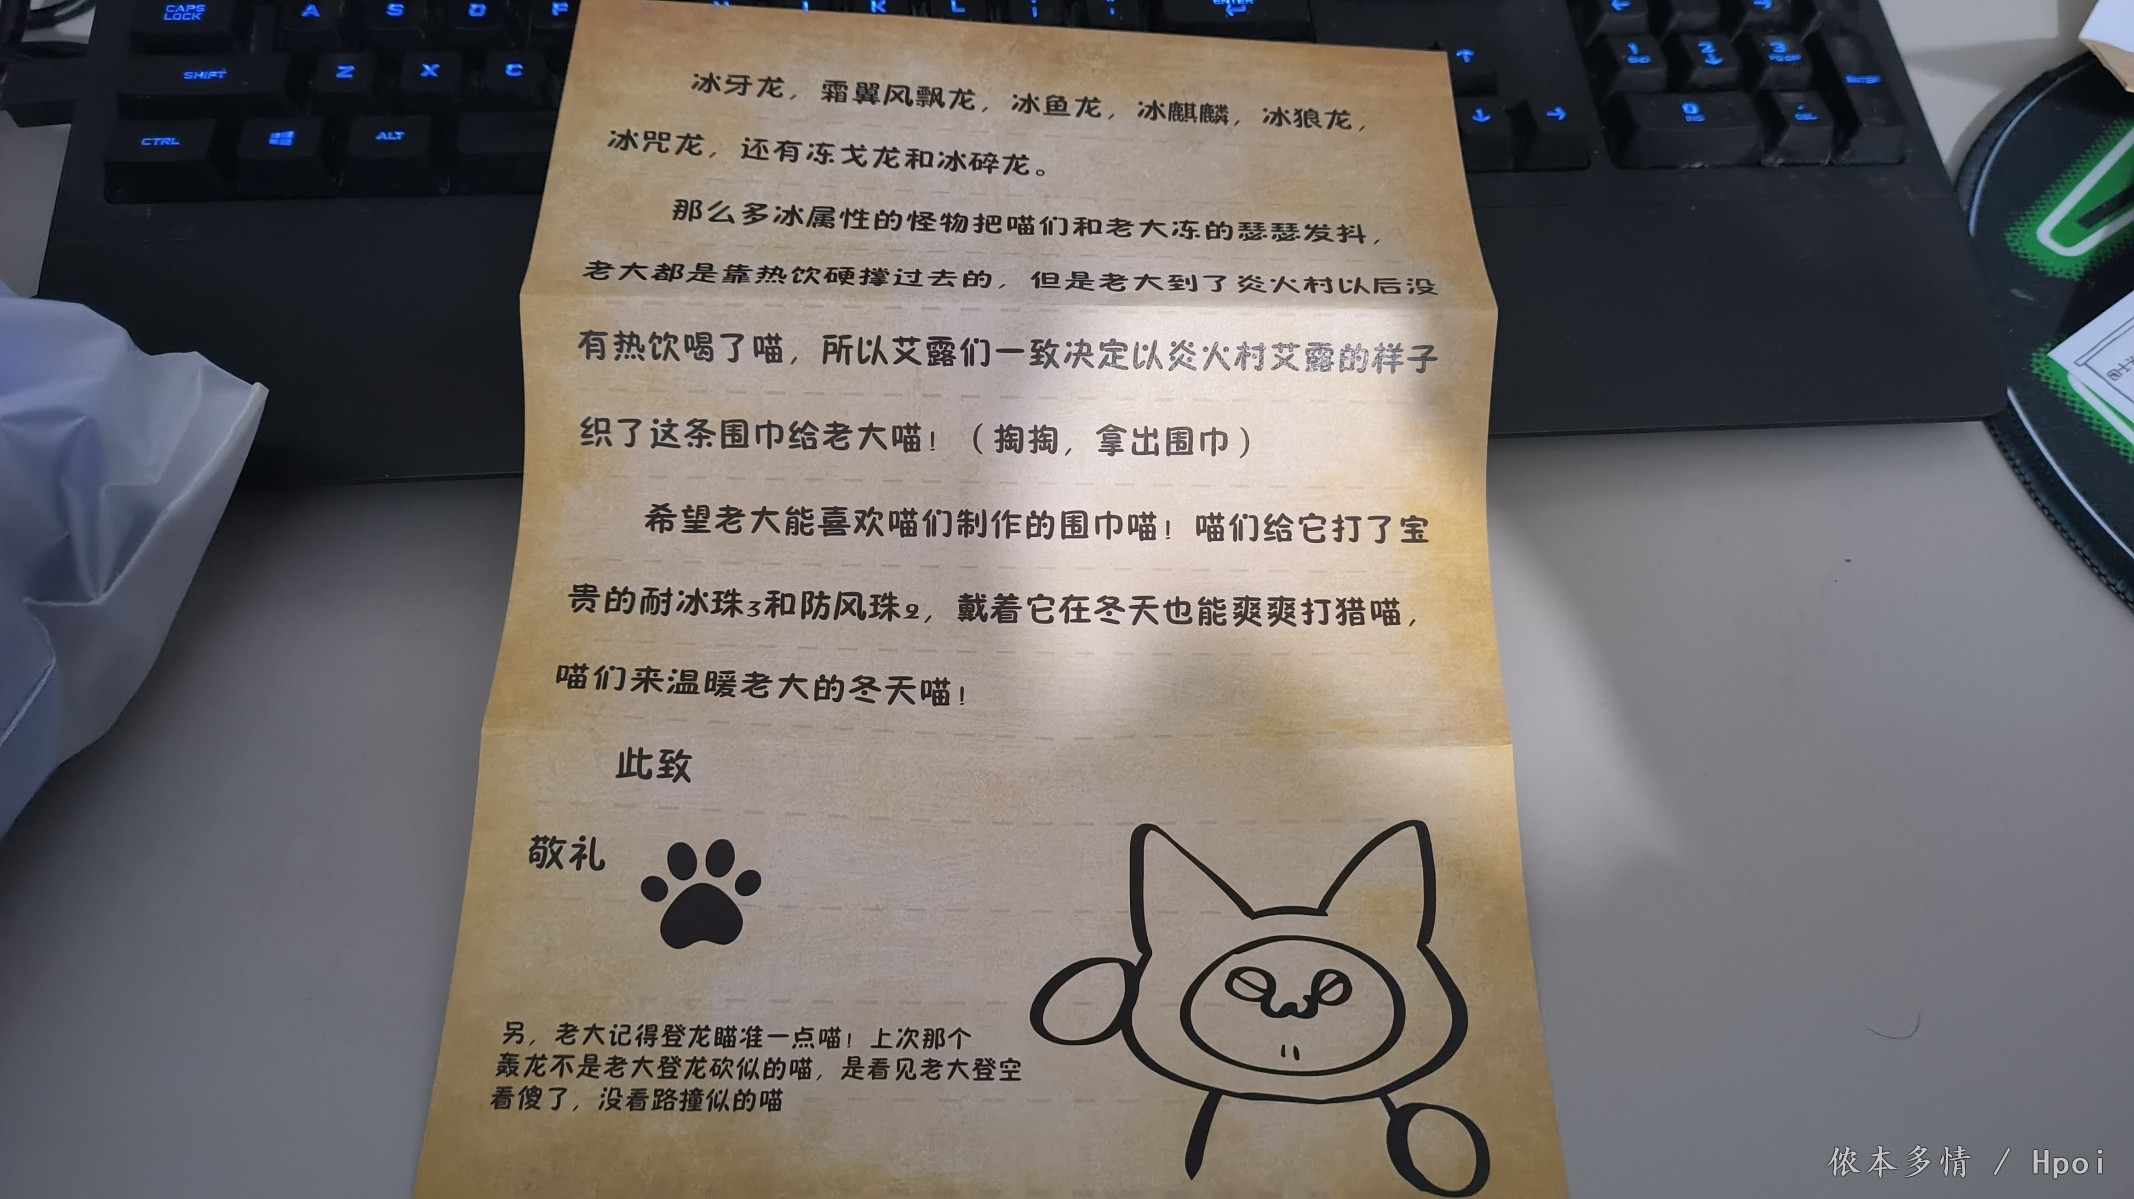 CAPS LOCK A S D F J K L ENTER
SHIFT Z X C 1 2 3
CTRL ALT 0 ENTER
冰牙龙，霜翼风飘龙，冰鱼龙，冰麒麟，冰狼龙，
冰咒龙，还有冻戈龙和冰碎龙。
那么多冰属性的怪物把喵们和老大冻的瑟瑟发抖，
老大都是靠热饮硬撑过去的，但是老大到了炎火村以后没
有热饮喝了喵，所以艾露们一致决定以炎火村艾露的样子
织了这条围巾给老大喵！（掏掏，拿出围巾）
希望老大能喜欢喵们制作的围巾喵！喵们给它打了宝
贵的耐冰珠3和防风珠2，戴着它在冬天也能爽爽打猎喵，
喵们来温暖老大的冬天喵！
此致
敬礼
另，老大记得登龙瞄准一点喵！上次那个
轰龙不是老大登龙砍似的喵，是看见老大登空
看傻了，没看路撞似的喵
侬本多情 / Hpoi